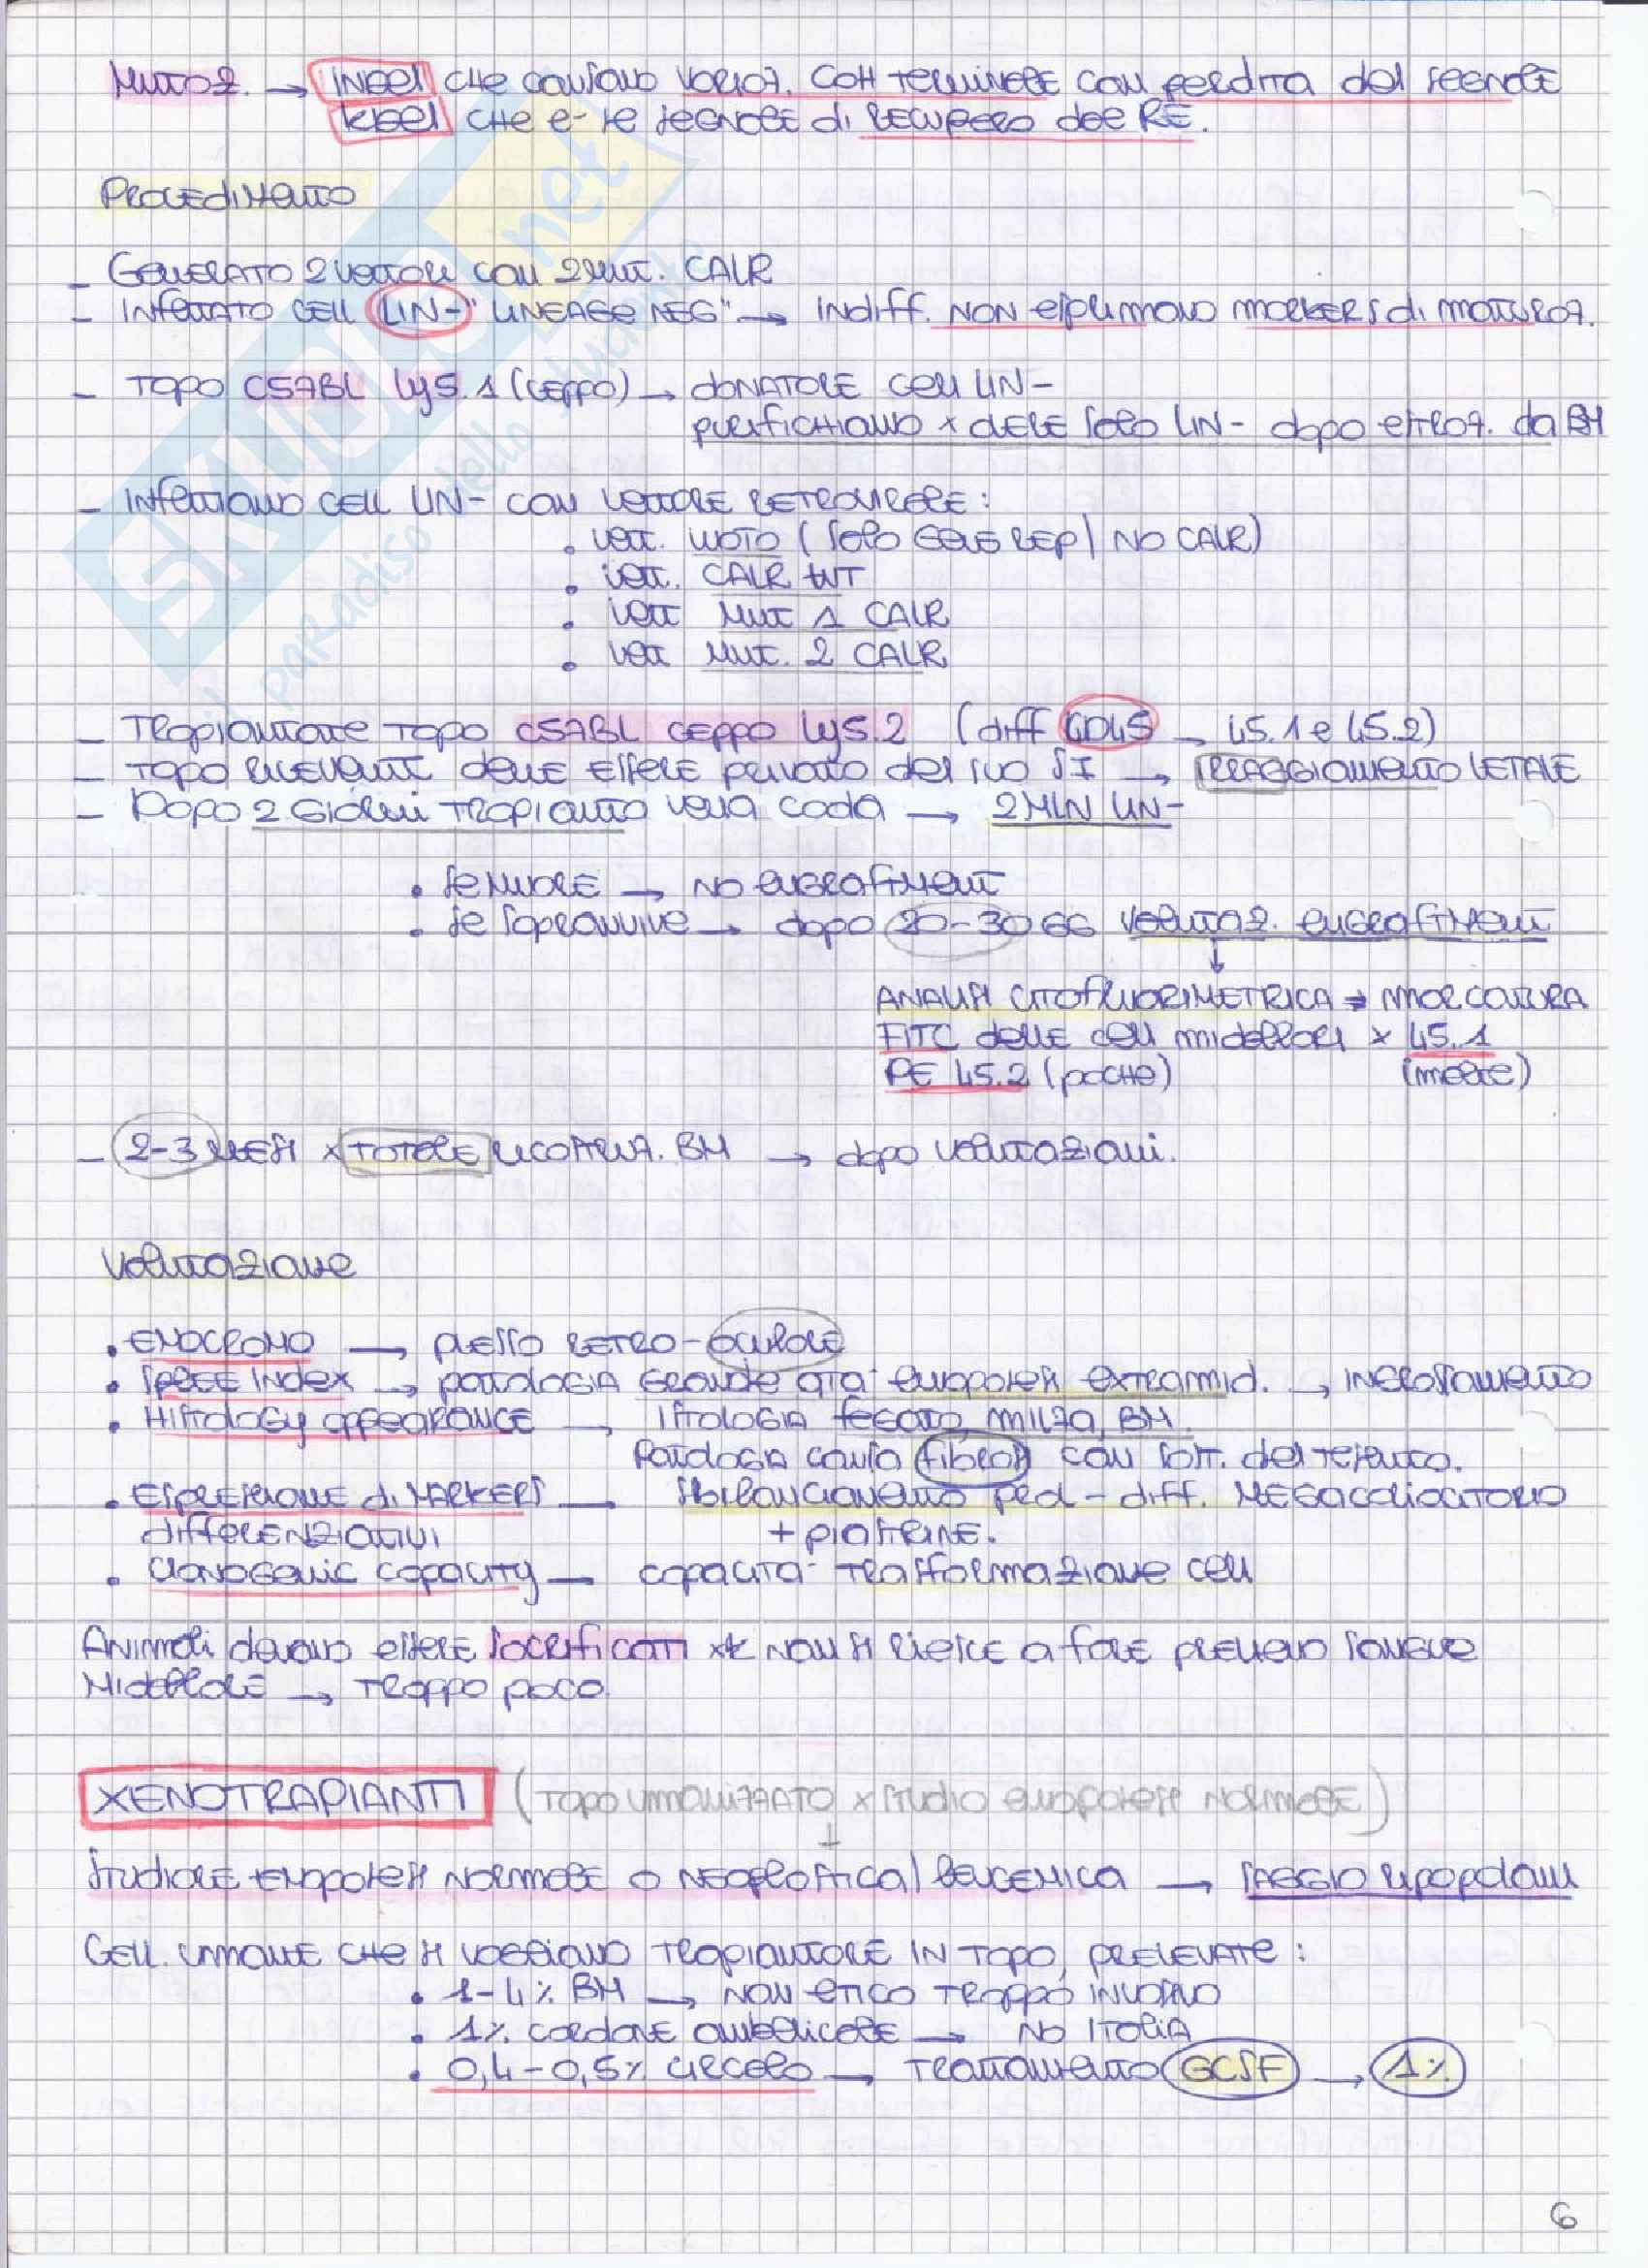 Mutaz. → INDEL che causano variaz. COH terminale con perdita del segnale
KDEL che è il segnale di recupero del RE.
Procedimento
- Generato 2 vettori con 2 mut. CALR
- Infettato cell LIN- "LINEAGE NEG" → indiff. NON esprimono markers di maturaz.
- Topo C57BL Ly5.1 (ceppo) → donatore cell LIN-
purifichiamo x avere solo LIN- dopo estraz. da BM
- Infettiamo cell LIN- con vettore retrovirale:
• vett. vuoto (solo gene rep / NO CALR)
• vett. CALR WT
• vett mut 1 CALR
• vett mut. 2 CALR
- Trapiantate topo C57BL ceppo Ly5.2 (diff CD45 → 45.1 e 45.2)
- Topo ricevente deve essere privato del suo SI → irraggiamento letale
- Dopo 2 giorni trapianto vena coda → 2 MLN LIN-
• se muore → no engraftment
• se sopravvive → dopo 20-30 GG valutaz. engraftment
↓
ANALISI CITOFLUORIMETRICA → marcatura
FITC delle cell midollari x 45.1
PE 45.2 (poche) (molte)
- 2-3 mesi x totale ricostruz. BM → dopo valutazioni.
Valutazione
• Emocromo → plesso retro-oculare
• Splee index → patologia grande qta emopoiesi extramid. → ingrossamento
• Histology appearance → istologia fegato, milza, BM.
Patologia causa fibrosi con sost. del tessuto.
• Espressione di markers — sbilanciamento prol-diff. megacariocitario
differenziativi + piastrine.
• Clonogenic capacity — capacità trasformazione cell
Animali devono essere sacrificati xk non si riesce a fare prelievo sangue
midollare → troppo poco.
XENOTRAPIANTI (topo umanizzato x studio emopoiesi normale)
↓
Studiare emopoiesi normale o neoplastica/leucemica → saggio ripopolam
Cell. umane che si vogliano trapiantare in topo, prelevate:
• 1-4% BM → non etico troppo invasivo
• 1% cordone ombelicale → no Italia
• 0,4-0,5% circolo → trattamento GCSF → 1%
6
SKUOLA.net
il paradiso dello studente